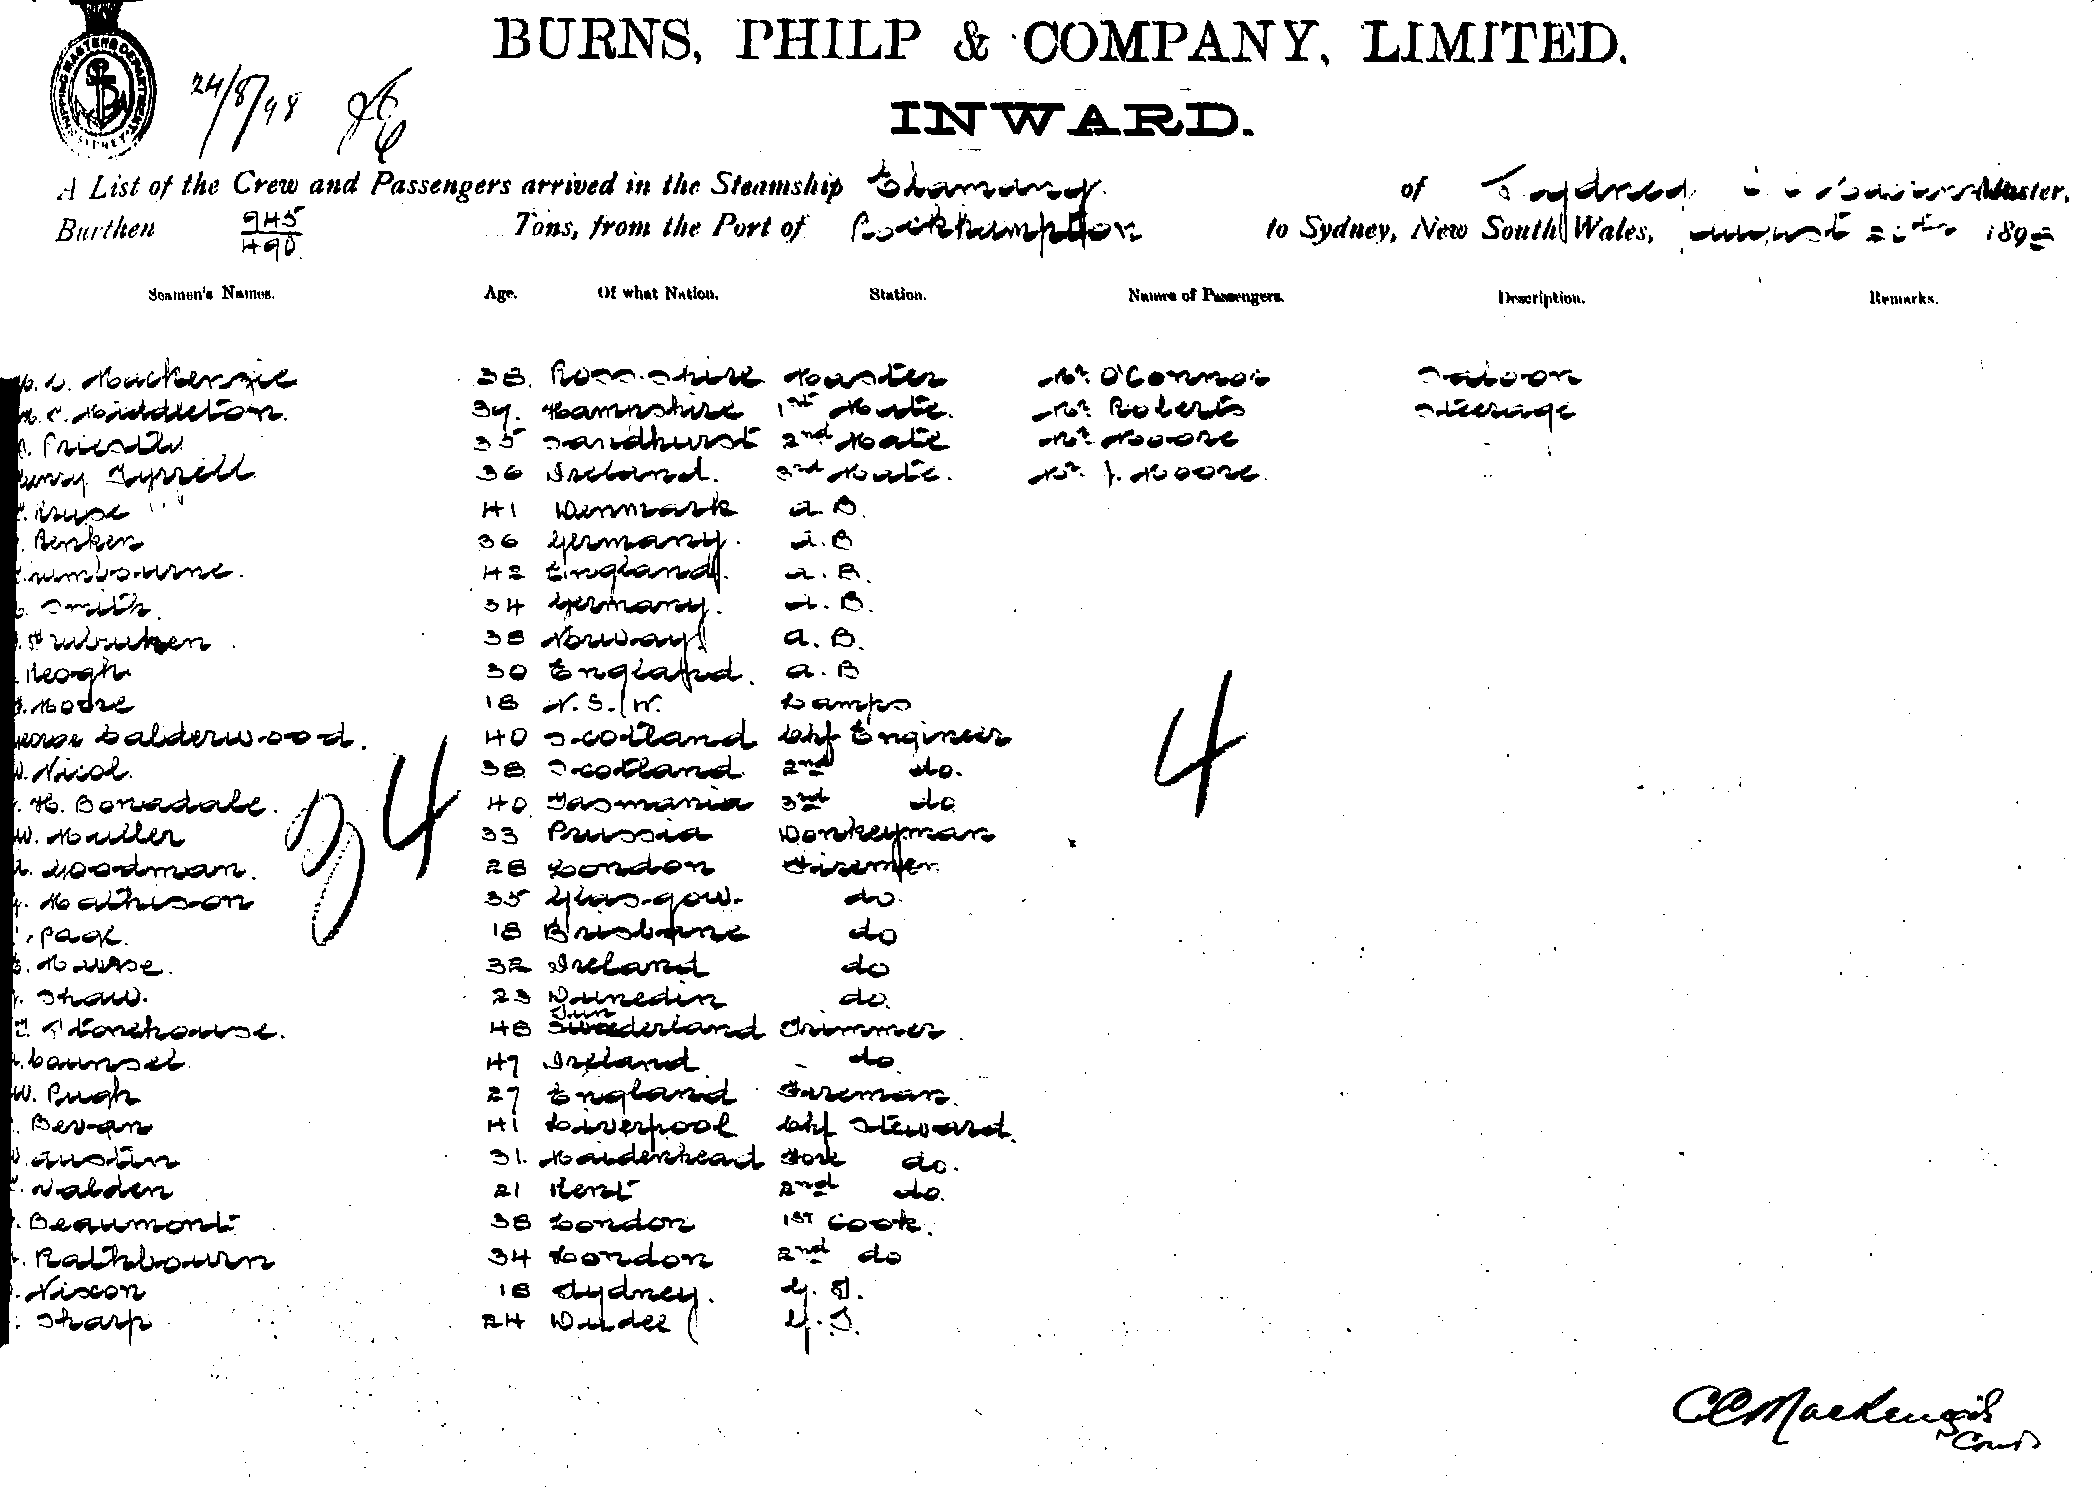 BURNS, PHILP & COMPANY, LIMITED.
24/8/98
INWARD.
A List of the Crew and Passengers arrived in the Steamship of Sydney, Master,
Burthen 945/490 Tons, from the Port of Rockhampton to Sydney, New South Wales, August 189
Seamen's Names. Age. Of what Nation. Station. Names of Passengers. Description. Remarks.
Mackenzie 38. Ross-shire Master Mr. O'Connor Saloon
Middleton. 39. Hampshire 1st Mate. Mr. Roberts Steerage
35 Sandhurst 2nd Mate Mr. Moore
Tyrrell 36 Ireland. 3rd Mate. Mr. J. Moore.
Kruse 41 Denmark a.B.
Renken 36 Germany. a.B
42 England. a.B.
Smith. 34 Germany. a.B.
38 Norway a.B.
Keogh 30 England. a.B
Moore 18 N.S.W. Lamps
George Calderwood. 40 Scotland Chf Engineer
Nicol. 38 Scotland 2nd do.
H. Bonadale. 40 Tasmania 3rd do
W. Muller 33 Prussia Donkeyman
Goodman. 28 London Firemen
Mathison 35 Glasgow. do.
Pack. 18 Brisbane do
32 Ireland do
Shaw. 23 Dunedin do.
Stonehouse. 48 Sunderland Trimmer
Counsel 47 Ireland do
W. Pugh 27 England Fireman.
Bevan 41 Liverpool Chf Steward.
Austin 31. Maidenhead Fore do.
Walden 21 Kent 2nd do.
Beaumont 38 London 1st Cook.
Rathbourn 34 London 2nd do
Nixon 18 Sydney.
Sharp 24 Dundee
34 4
Mackenzie